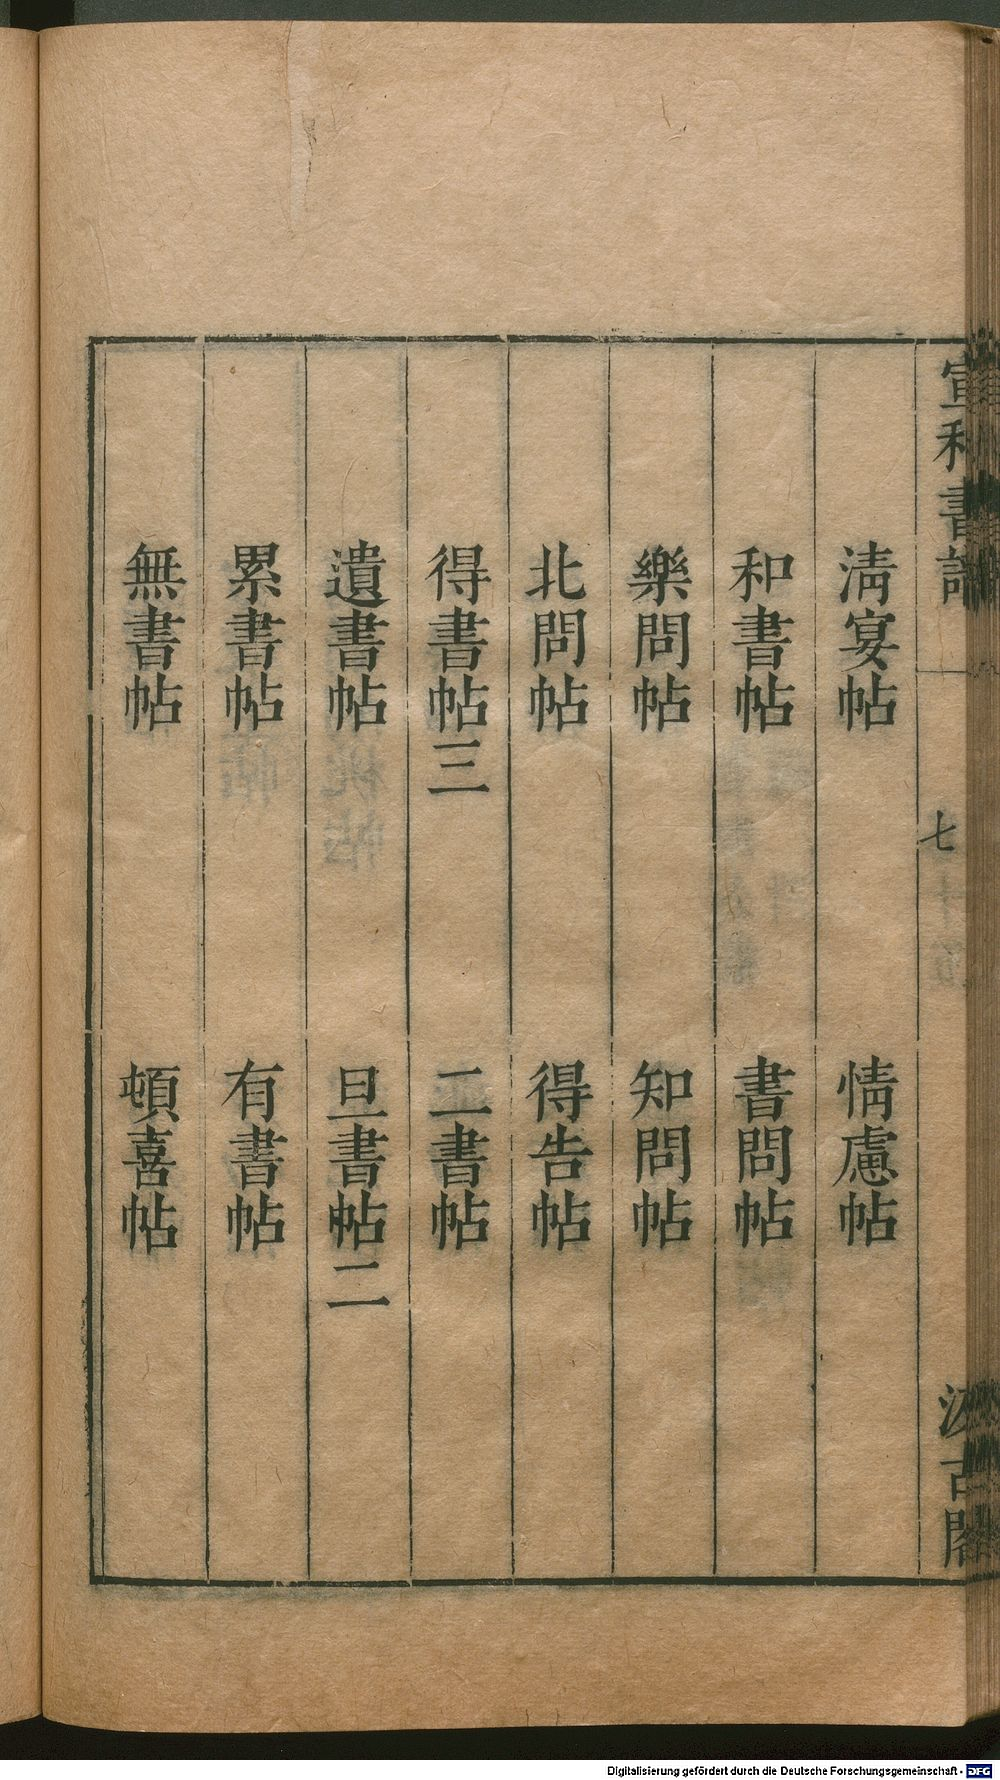 宣和書譜 七 汲古閣
清宴帖 情慮帖
和書帖 書問帖
樂問帖 知問帖
北問帖 得告帖
得書帖三 二書帖
遺書帖 旦書帖二
累書帖 有書帖
無書帖 頓喜帖
Digitalisierung gefördert durch die Deutsche Forschungsgemeinschaft - DFG